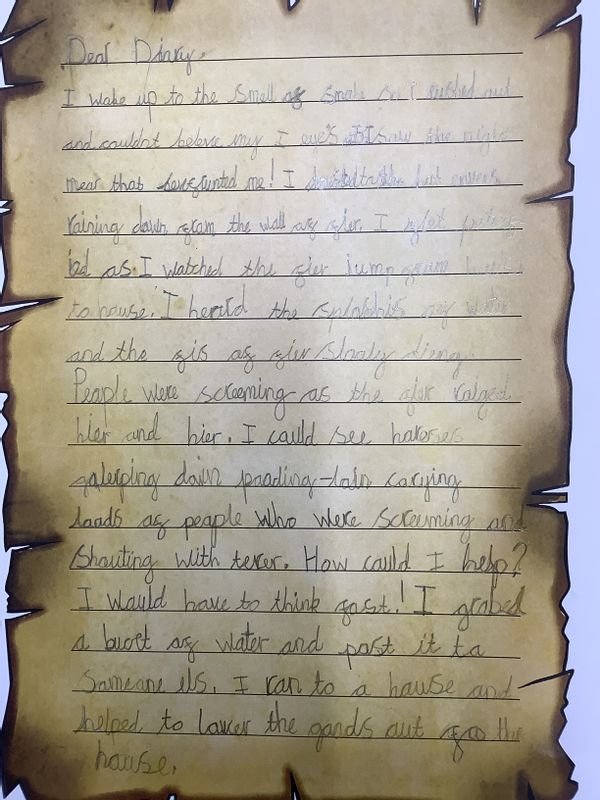 Dear Diary,
I wake up to the smell of smoke so i rushed out
and couldnt beleve my I eye's I saw the night
mear that horunted me! I
raining dawn fram the wall of fier. I felt petrif
ied as I watched the fier jump fram hause
to hause. I heruld the splashis of water
and the fis of fier slowly dieng.
Peaple were screeming as the fier raiged
hier and hier. I cauld see hakerses
galerping dawn paading-lain carying
laads af peaple who were screeming and
shauting with terer. Haw cauld I help?
I wauld have to think fast! I grabed
a buoet af water and past it ta
sameane els. I ran to a hause and
helped to lawer the gands aut the
hause.